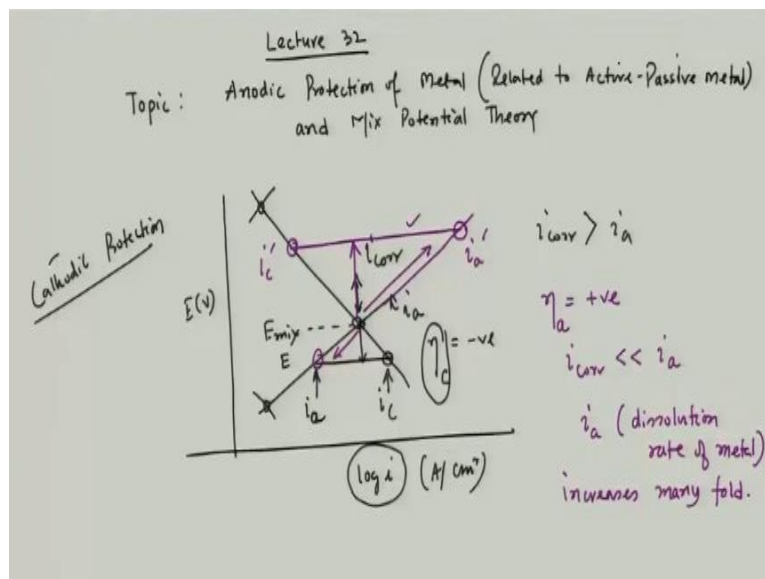 Lecture 32
Topic : Anodic Protection of Metal (Related to Active-Passive metal)
and Mix Potential Theory
Cathodic Protection
E(V)
i'c
icorr
i'a
ia
Emix
E
ηc = -ve
ia
ic
log i (A/cm²)
icorr > ia
ηa = +ve
icorr << i'a
i'a (dissolution
rate of metal)
increases many fold.